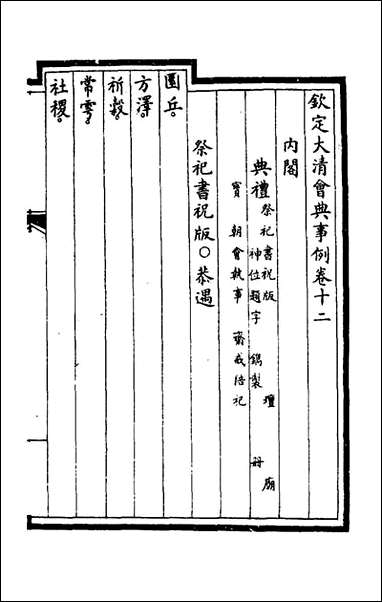 欽定大清會典事例卷十二
內閣
典禮
祭祀書祝版 壇 廟
神位題字 鐫製 册
寶 朝會執事 齋戒陪祀
祭祀書祝版○恭遇
圜丘。
方澤。
祈穀。
常雩。
社稷。